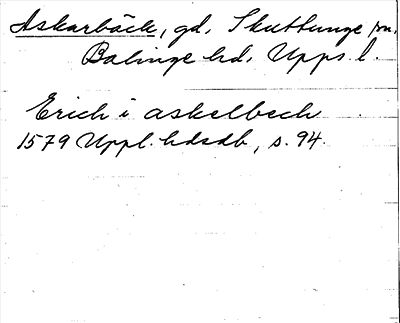 Askarbäck, gd, Skuttunge sn,
Balinge hd, Upps. l.
Erich i askelbech
1579 Uppl. hdsdb, s. 94.